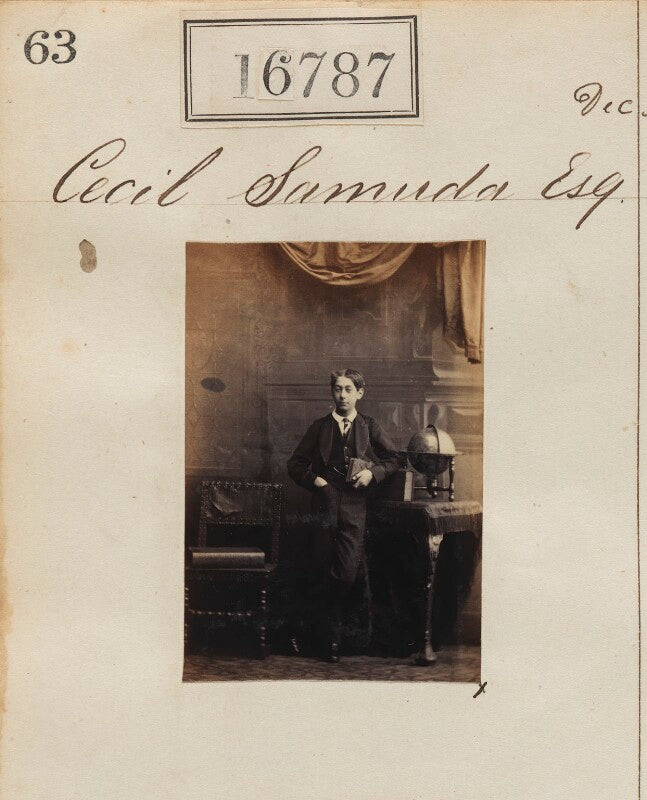 63
16787
Dec.
Cecil Samuda Esq.
x